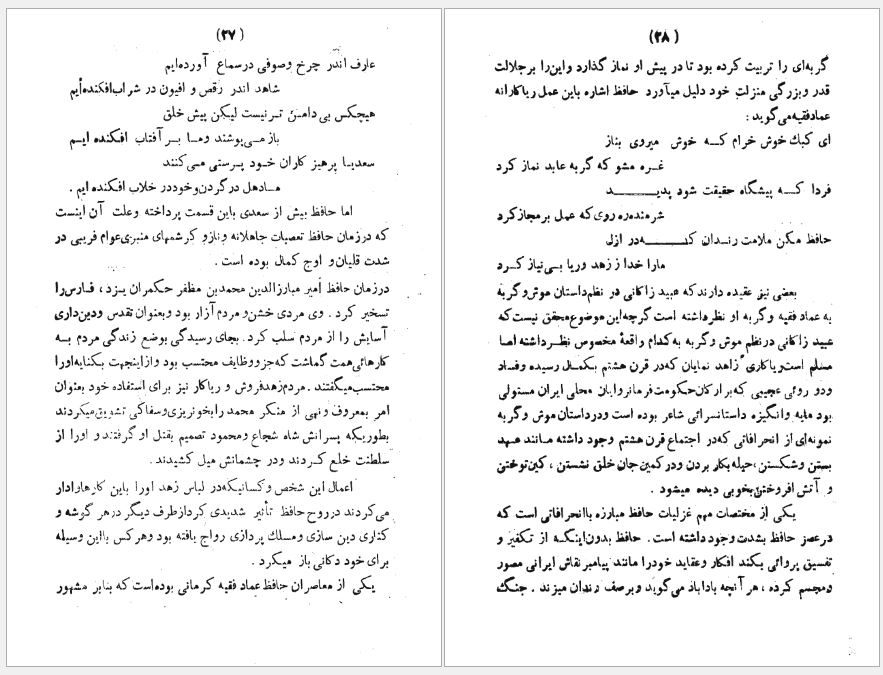 (۲۷)
عارف اندر چرخ وصوفی درسماع آورده‌ایم
شاهد اندر رقص و افیون در شراب‌افکنده‌ایم
هیچکس بی دامن تر نیست لیکن پیش خلق
باز می‌پوشند وما بر آفتاب افکنده ایم
سعدیا پرهیز کاران خود پرستی می‌کنند
ما دهل در گردن‌و خر در خلاب افکنده ایم .
اما حافظ بیش از سعدی باین قسمت پرداخته وعلت آن اینست
که درزمان حافظ تعصبات جاهلانه ونازو کرشمه‌های منبری‌عوام فریبی در
شدت غلیان‌و اوج کمال بوده است .
درزمان حافظ امیر مبارزالدین محمدبن مظفر حکمران یزد ، فارس‌را
تسخیر کرد . وی مردی خشن‌و مردم آزار بود وبعنوان تقدس ودین‌داری
آسایش را از مردم سلب کرد. بجای رسیدگی بوضع زندگی مردم به
کارهائی‌همت گماشت که‌جزووظایف محتسب بود وازاینجهت بکنایه‌اورا
محتسب‌میگفتند . مردم‌زهدفروش و ریاکار نیز برای استفاده خود بعنوان
امر بمعروف‌و نهی از منکر محمد رابخونریزی‌و سفاکی تشویق‌میکردند
بطوریکه پسرانش شاه شجاع ومحمود تصمیم بقتل او گرفتند و اورا از
سلطنت خلع کردند ودر چشمانش میل کشیدند .
اعمال این شخص وکسانیکه‌در لباس زهد اورا باین کارهاوادار
می‌کردند درروح حافظ تأثیر شدیدی کردازطرف دیگر درهر گوشه و
کناری دین سازی ومسلک پردازی رواج یافته بود وهرکس بااین وسیله
برای خود دکانی باز میکرد .
یکی از معاصران حافظ عماد فقیه کرمانی بوده‌است که بنابر مشهور
(۲۸)
گربه‌ای را تربیت کرده بود تا در پیش او نماز گذارد واین‌را برجلالت
قدر وبزرگی منزلت خود دلیل میآورد حافظ اشاره باین عمل ریاکارانه
عمادفقیه‌می‌گوید :
ای کبک خوش خرام که خوش میروی بناز
غره مشو که گربه عابد نماز کرد
فردا که پیشگاه حقیقت شود پدید
شرمنده‌ره‌روی‌که عمل برمجازکرد
حافظ مکن ملامت رندان که‌در ازل
مارا خدا ز زهد وریا بی‌نیاز کرد
بعضی نیز عقیده دارندکه عبید زاکانی در نظم‌داستان موش‌وگربه
به عماد فقیه وگربه او نظرداشته است گرچه‌این موضوع‌محقق نیست‌که
عبید زاکانی درنظم موش وگربه به‌کدام واقعهٔ مخصوص نظرداشته اما
مسلم است‌ریاکاری زاهد نمایان که‌در قرن هشتم بکمال رسیده وفساد
ودو روئی عجیبی که‌بر ارکان‌حکومت‌فرمانروایان محلی ایران مستولی
بود مایه وانگیزه داستانسرائی شاعر بوده است ودرداستان موش وگربه
نمونه‌ای از انحرافاتی که‌در اجتماع قرن هشتم وجود داشته مانند عهد
بستن وشکستن،حیله‌بکار بردن ودرکمین‌جان خلق نشستن ، کین‌توختن
و آتش افروختن‌بخوبی دیده میشود .
یکی از مختصات مهم غزلیات حافظ مبارزه باانحرافاتی است که
درعصر حافظ بشدت‌وجودداشته است . حافظ بدون‌اینکه از تکفیر و
تفسیق پروائی بکند افکار وعقاید خودرا مانند پیامبرنقاش ایرانی مصور
ومجسم کرده ، هر آنچه باداباد می‌گوید وبرصف رندان میزند . جنگ